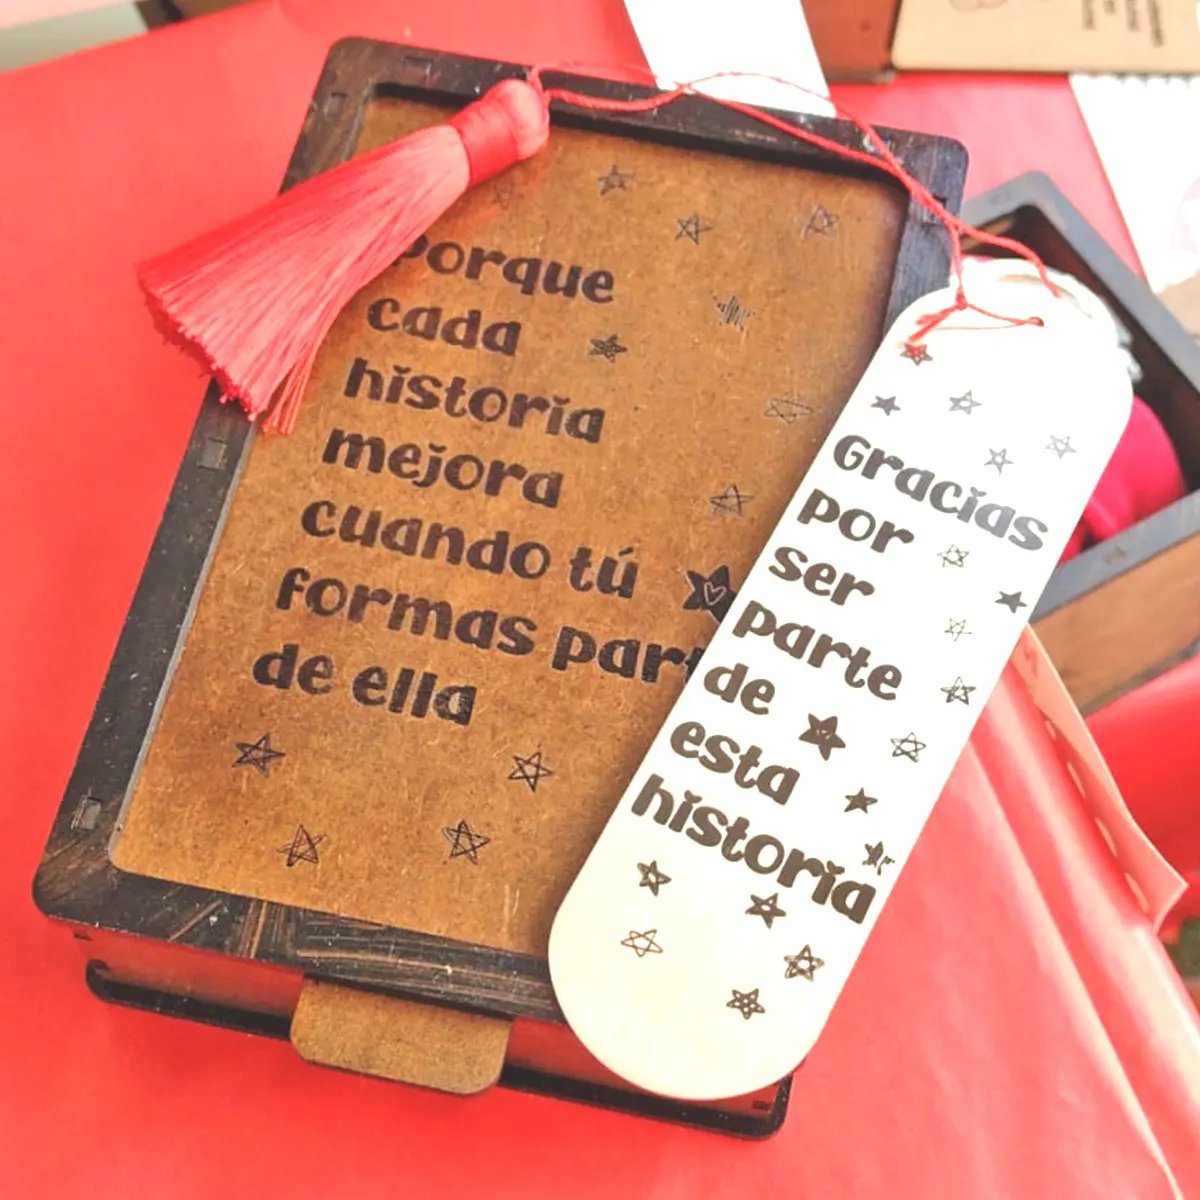 Porque
cada
historia
mejora
cuando tú
formas part
de ella
Gracias
por
ser
parte
de
esta
historia